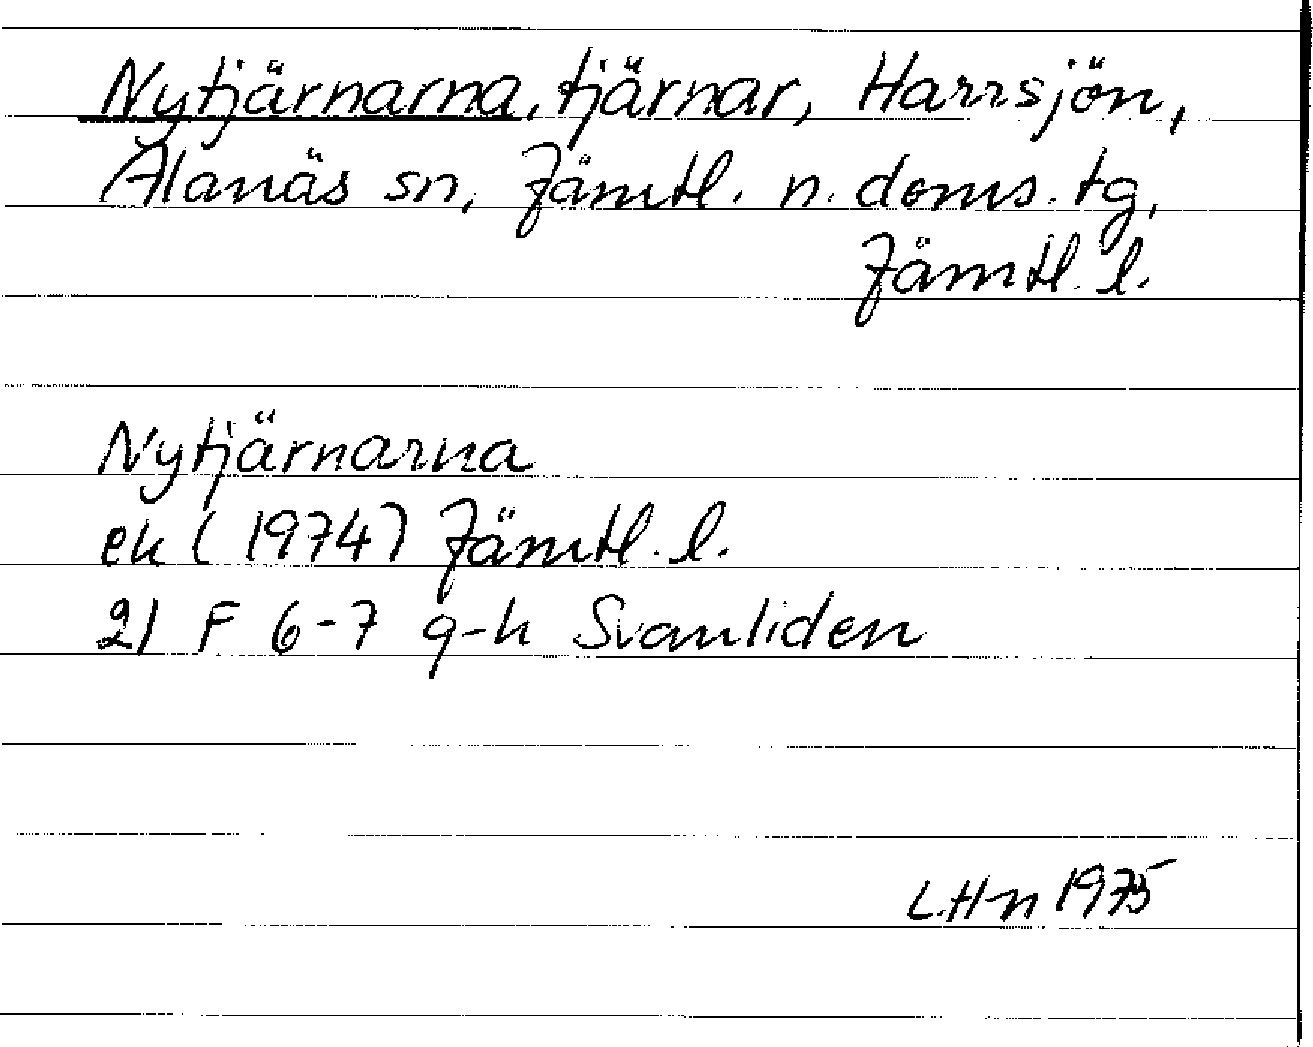 Nytjärnarna, tjärnar, Harrsjön,
Alanäs sn, Jämtl. n. doms. tg,
Jämtl. l.
Nytjärnarna
ek (1974) Jämtl. l.
21 F 6-7 g-h Svanliden
L.Hn 1975